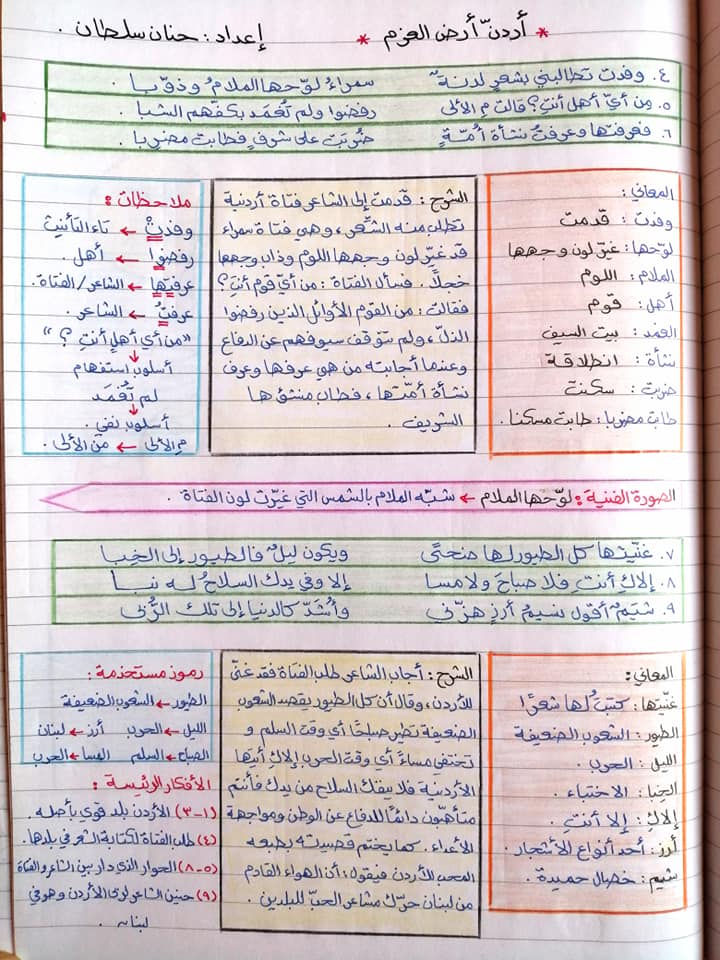 * أردنّ أرض العزم *
إعداد: حنان سلطان.
٤. وفدت تطالبني بشعرٍ لدنةٌ سمراءُ لوّحها الملامُ وذوّبا.
٥. مِن أيّ أهل أنتِ؟ قالت مِ الألى رفضوا ولم تُغمَد بكفّهم الشبا.
٦. فعرفتها وعرفتُ نشأة أمّةٍ ضُربَت على شرفٍ فطابت مضربا.
المعاني:
وفدت: قدمت
لوّحها: غيّر لون وجهها
الملام: اللوم
أهل: قوم
الغمد: بيت السيف
نشأة: انطلاقة
ضربت: سكنت
طابت مضربا: طابت مسكنا.
الشرح: قدمت إلى الشاعر فتاة أردنية
تطلب منه الشّعر، وهي فتاة سمراء
قد غيّر لون وجهها اللوم وذاب وجهها
خجلًا. فسأل الفتاة: من أيّ قوم أنتِ؟
فقالت: من القوم الأوائل الذين رفضوا
الذلّ، ولم تتوقف سيوفهم عن الدفاع
وعندما أجابته من هي عرفها وعرف
نشأة أمّتها، فطاب منشؤها
الشريف.
ملاحظات:
وفدتْ ← تاء التأنيث
رفضوا ← أهل.
عرفتها ← الشاعر/الفتاة.
عرفتُ ← الشاعر.
"من أي أهلٍ أنتِ؟"
↓
أسلوب استفهام
لم تُغْمَد
↓
أسلوب نفي.
مِ الألى ← من الألى.
الصورة الفنية: لوّحها الملام ← شبّه الملام بالشمس التي غيّرت لون الفتاة.
٧. غنّيتها كل الطيور لها ضحتى ويكون ليلٌ فالطيور إلى الخِبا
٨. إلاكِ أنتِ فلا صباحَ ولا مسا إلا وفي يدك السلاحُ له نبا
٩. شيَمٌ أقول نسيمُ أرزٍ هزّني وأُشدّ كالدنيا إلى تلك الرُّبى
المعاني:
غنّيتها: كتبتُ لها شعرًا
الطيور: الشعوب الضعيفة
الليل: الحرب.
الخِبا: الاختباء.
إلاكِ: إلا أنتِ.
أرز: أحد أنواع الأشجار.
شيم: خصال حميدة.
الشرح: أجاب الشاعر طلب الفتاة فقد غنّى
للأردن، وقال أن كل الطيور يقصد الشعوب
الضعيفة تطير صباحًا أي وقت السلم و
تختفي مساءً أي وقت الحرب إلاكِ أيتها
الأردنية فلا يفكّ السلاح من يدك فأنتم
متأهّبون دائمًا للدفاع عن الوطن ومواجهة
الأعداء. كما يختم قصيدته بطبعه
المحب للأردن فيقول: أن الهواء القادم
من لبنان حرّك مشاعر الحبّ للبلدين.
رموز مستخدمة:
الطيور ← الشعوب الضعيفة
الليل ← الحرب أرز ← لبنان
الصباح ← السلم المسا ← الحرب
الأفكار الرئيسة:
(١-٣) الأردن بلد قوي بأصله.
(٤) طلب الفتاة لكتابة الشعر في بلدها.
(٥-٨) الحوار الذي دار بين الشاعر والفتاة
(٩) حنين الشاعر لرؤى الأردن وهو في
لبنان.